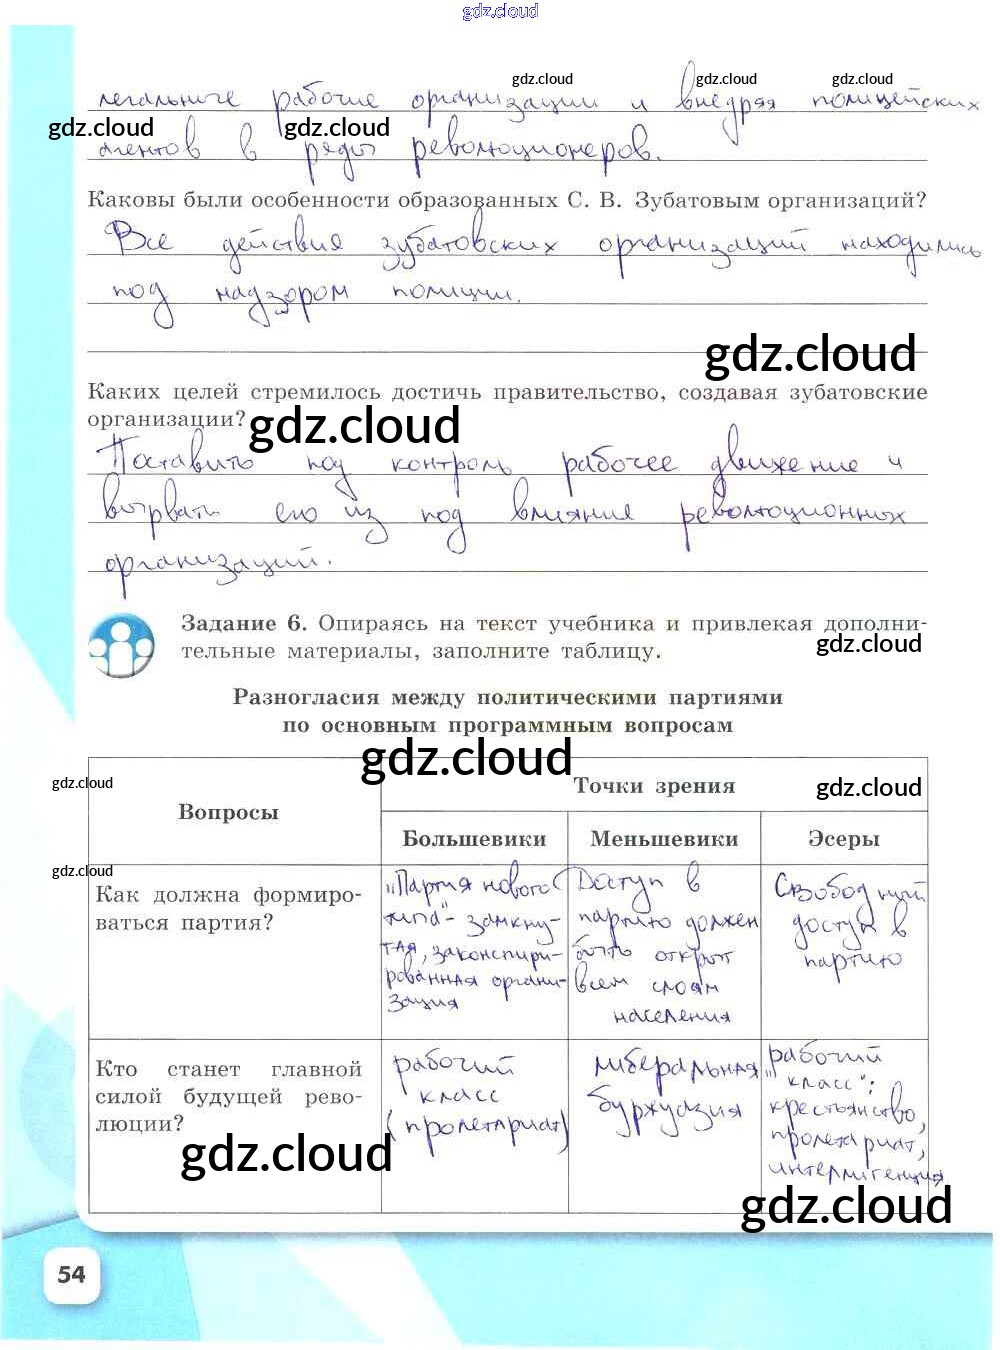 gdz.cloud
gdz.cloud gdz.cloud gdz.cloud
легальные рабочие организации и внедряя полицейских
gdz.cloud gdz.cloud
агентов в ряды революционеров.
Каковы были особенности образованных С. В. Зубатовым организаций?
Все действия зубатовских организаций находились
под надзором полиции.
gdz.cloud
Каких целей стремилось достичь правительство, создавая зубатовские
организации?
gdz.cloud
Поставить под контроль рабочее движение и
вырвать его из под влияния революционных
организаций.
Задание 6. Опираясь на текст учебника и привлекая дополни-
тельные материалы, заполните таблицу.
gdz.cloud
Разногласия между политическими партиями
по основным программным вопросам
gdz.cloud
gdz.cloud
gdz.cloud
Вопросы
Точки зрения
Большевики Меньшевики Эсеры
gdz.cloud
Как должна формиро-
ваться партия?
"Партия нового
типа" - замкну-
тая, законспири-
рованная органи-
зация
Доступ в
партию должен
быть открыт
всем слоям
населения
Свободный
доступ в
партию
Кто станет главной
силой будущей рево-
люции?
рабочий
класс
(пролетариат)
либеральная
буржуазия
рабочий
"класс":
крестьянство,
пролетариат,
интеллигенция
gdz.cloud
gdz.cloud
54